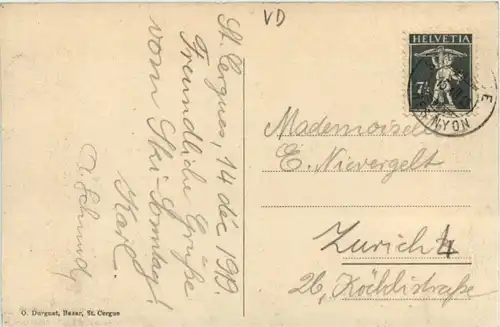 VD
HELVETIA
7½
NYON
St. Cergues, 14 déc 1919.
Freundliche Grüße
vom Ski-Sonntag!
Karl
O. Schmid
Mademoiselle
E. Nievergelt
Zurich 4
26, Köchlistraße
O. Durgnat, Bazar, St. Cergue